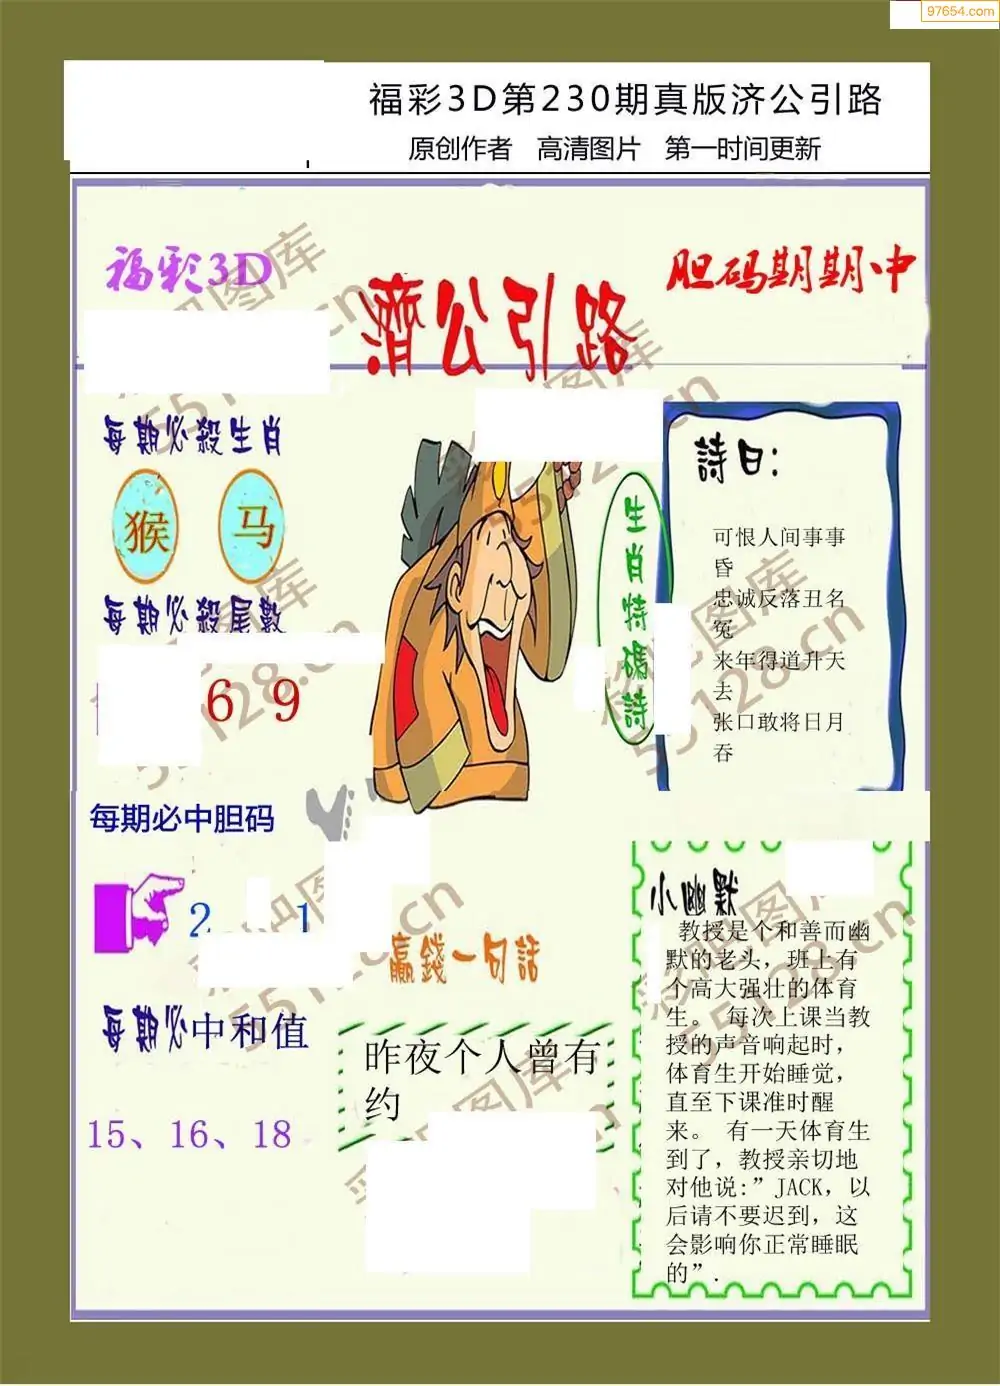 97654.com
福彩3D第230期真版济公引路
原创作者 高清图片 第一时间更新
福彩3D
胆码期期中
濟公引路
每期必殺生肖
猴 马
每期必殺尾數
6 9
每期必中胆码
2 1
每期必中和值
15、16、18
生肖特碼詩
詩曰:
可恨人间事事
昏
忠诚反落丑名
冤
来年得道升天
去
张口敢将日月
吞
赢錢一句話
昨夜个人曾有
约
小幽默
教授是个和善而幽
默的老头，班上有
个高大强壮的体育
生。 每次上课当教
授的声音响起时，
体育生开始睡觉，
直至下课准时醒
来。 有一天体育生
到了，教授亲切地
对他说:”JACK，以
后请不要迟到，这
会影响你正常睡眠
的”.
55128.cn
55128.cn
55128.cn
55128.cn